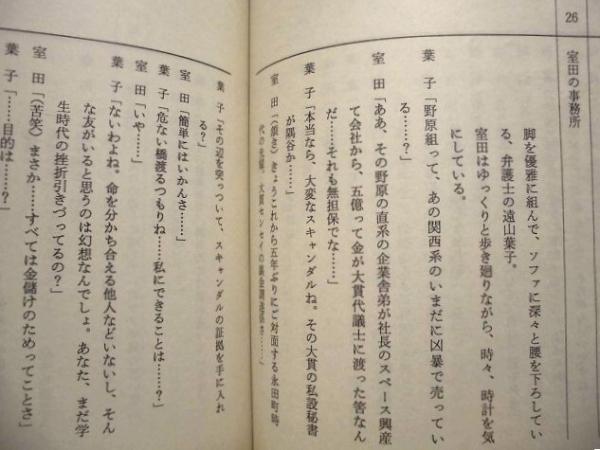 26 室田の事務所
脚を優雅に組んで、ソファに深々と腰を下ろしてい
る、弁護士の遠山葉子。
室田はゆっくりと歩き廻りながら、時々、時計を気
にしている。
葉子「野原組って、あの関西系のいまだに凶暴で売ってい
る……?」
室田「ああ、その野原の直系の企業舎弟が社長のスペース興産
て会社から、五億って金が大貫代議士に渡った筈なん
だ……それも無担保でな……」
葉子「本当なら、大変なスキャンダルね。その大貫の私設秘書
が隅谷か……」
室田「(頷き)きょうこれから五年ぶりにご対面する永田町時
代の先輩、大貫センセイの
葉子「その辺を突っついて、スキャンダルの証拠を手に入れ
る?」
室田「簡単にはいかんさ……」
葉子「危ない橋渡るつもりね……私にできることは……?」
室田「いや……」
葉子「ないわよね。命を分かち合える他人などいないし、そん
な友がいると思うのは幻想なんでしょ。あなた、まだ学
生時代の挫折引きづってるの?」
室田「(苦笑)まさか……すべては金儲けのためってことさ」
葉子「……目的は……?」